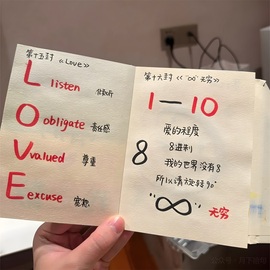 第十五封 《Love》
L listen 倾听
O obligate 责任感
V valued 尊重
E excuse 宽恕
第十六封 《"∞"无穷》
1—10
爱的程度
8进制
8
我的世界没有8
所以请旋转90°
"∞" 无穷